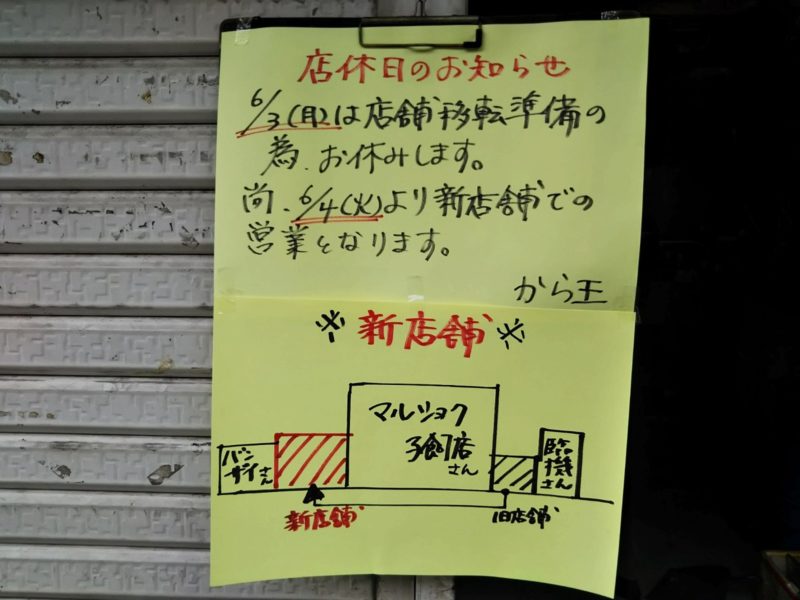 店休日のお知らせ
6/3(月)は店舗移転準備の
為、お休みします。
尚、6/4(火)より新店舗での
営業となります。
から王
※新店舗※
マルショク
子飼店
さん
バン
ザイさん
臨機さん
新店舗
旧店舗